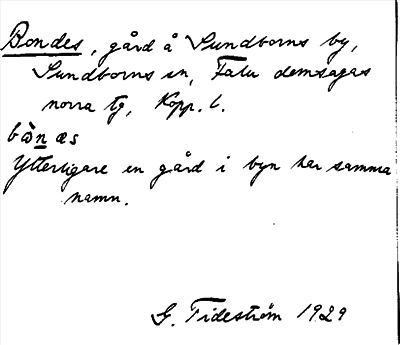 Bondes, gård å Sundborns by,
Sundborns sn, Falu domsagas
norra tg, Kopp. l.
bò̀næs
Ytterligare en gård i byn har samma
namn.
G. Tideström 1929